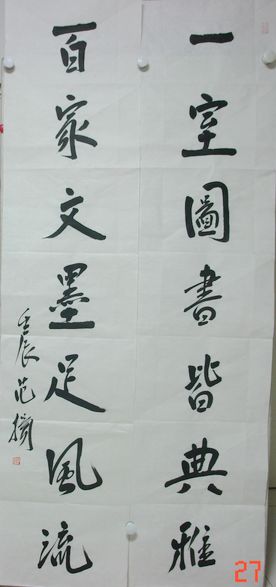 一室圖書皆典雅
百家文墨足風流
壬辰范
27